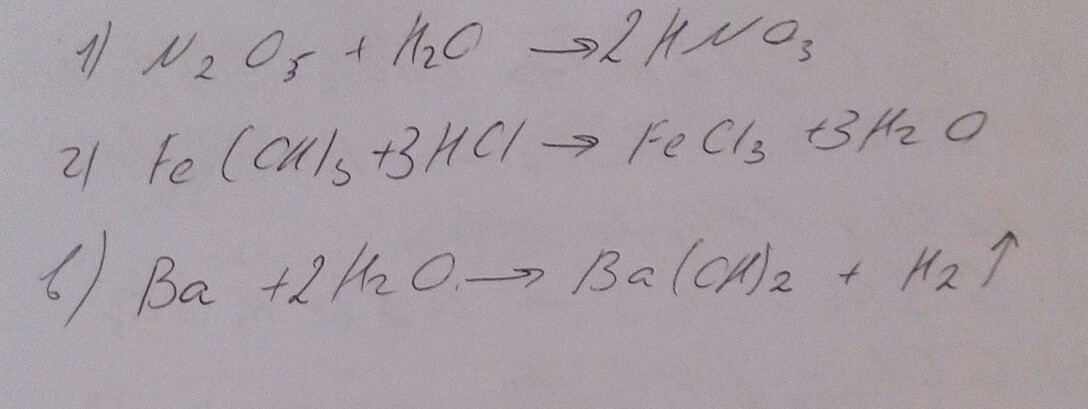 1) N₂O₅ + H₂O → 2HNO₃
г) Fe(OH)₃ + 3HCl → FeCl₃ + 3H₂O
в) Ba + 2H₂O → Ba(OH)₂ + H₂↑